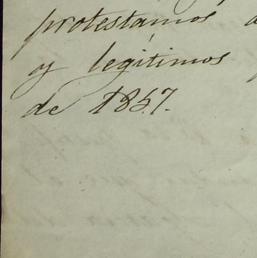 protestamos
y legitimos
de 1857.